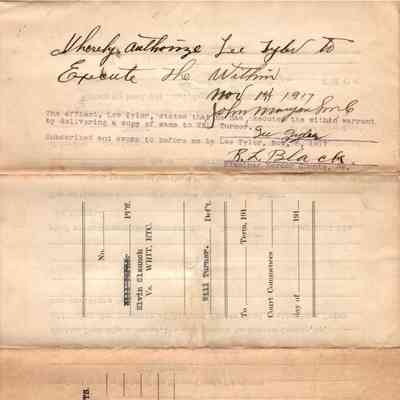 I hereby authorize Lee Tyler to
Execute the Within
Nov 1st 1917
John Morgan
The affiant, Lee Tyler, states that he has executed the within warrant
by delivering a copy of same to Will Turner.
Lee Tyler
Subscribed and sworn to before me by Lee Tyler, Nov. 1917
R. L. Black.
No.
Pl'ff.
Elvin Claunch
Vs. WRIT. ETC.
Will Turner. Def't.
To Term, 191
Court Commences
day of 191